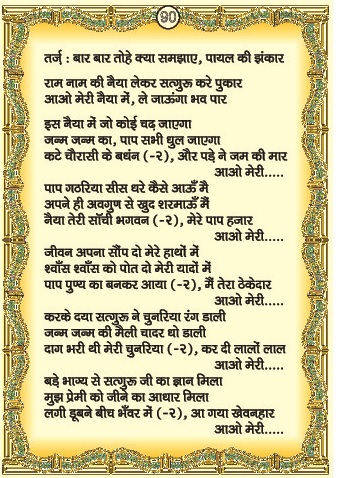 90
तर्ज़ : बार बार तोहे क्या समझाए, पायल की झंकार
राम नाम की नैया लेकर सत्गुरू करे पुकार
आओ मेरी नैया में, ले जाऊंगा भव पार
इस नैया में जो कोई चढ़ जाएगा
जन्म जन्म का, पाप सभी धुल जाएगा
कटे चौरासी के बंधन (-२), और पड़े ने जम की मार
आओ मेरी.....
पाप गठरिया सीस धरे कैसे आऊँ मै
अपने ही अवगुण से खुद शरमाऊँ मैं
नैया तेरी साँची भगवन (-२), मेरे पाप हजार
आओ मेरी.....
जीवन अपना सौंप दो मेरे हाथों में
श्वाँस श्वाँस को पोत दो मेरी यादों में
पाप पुण्य का बनकर आया (-२), मैं तेरा ठेकेदार
आओ मेरी.....
करके दया सत्गुरू ने चुनरिया रंग डाली
जन्म जन्म की मैली चादर धो डाली
दाग भरी थी मेरी चुनरिया (-२), कर दी लालों लाल
आओ मेरी.....
बड़े भाग्य से सत्गुरू जी का ज्ञान मिला
मुझ प्रेमी को जीने का आधार मिला
लगी डूबने बीच भँवर में (-२), आ गया खेवनहार
आओ मेरी.....